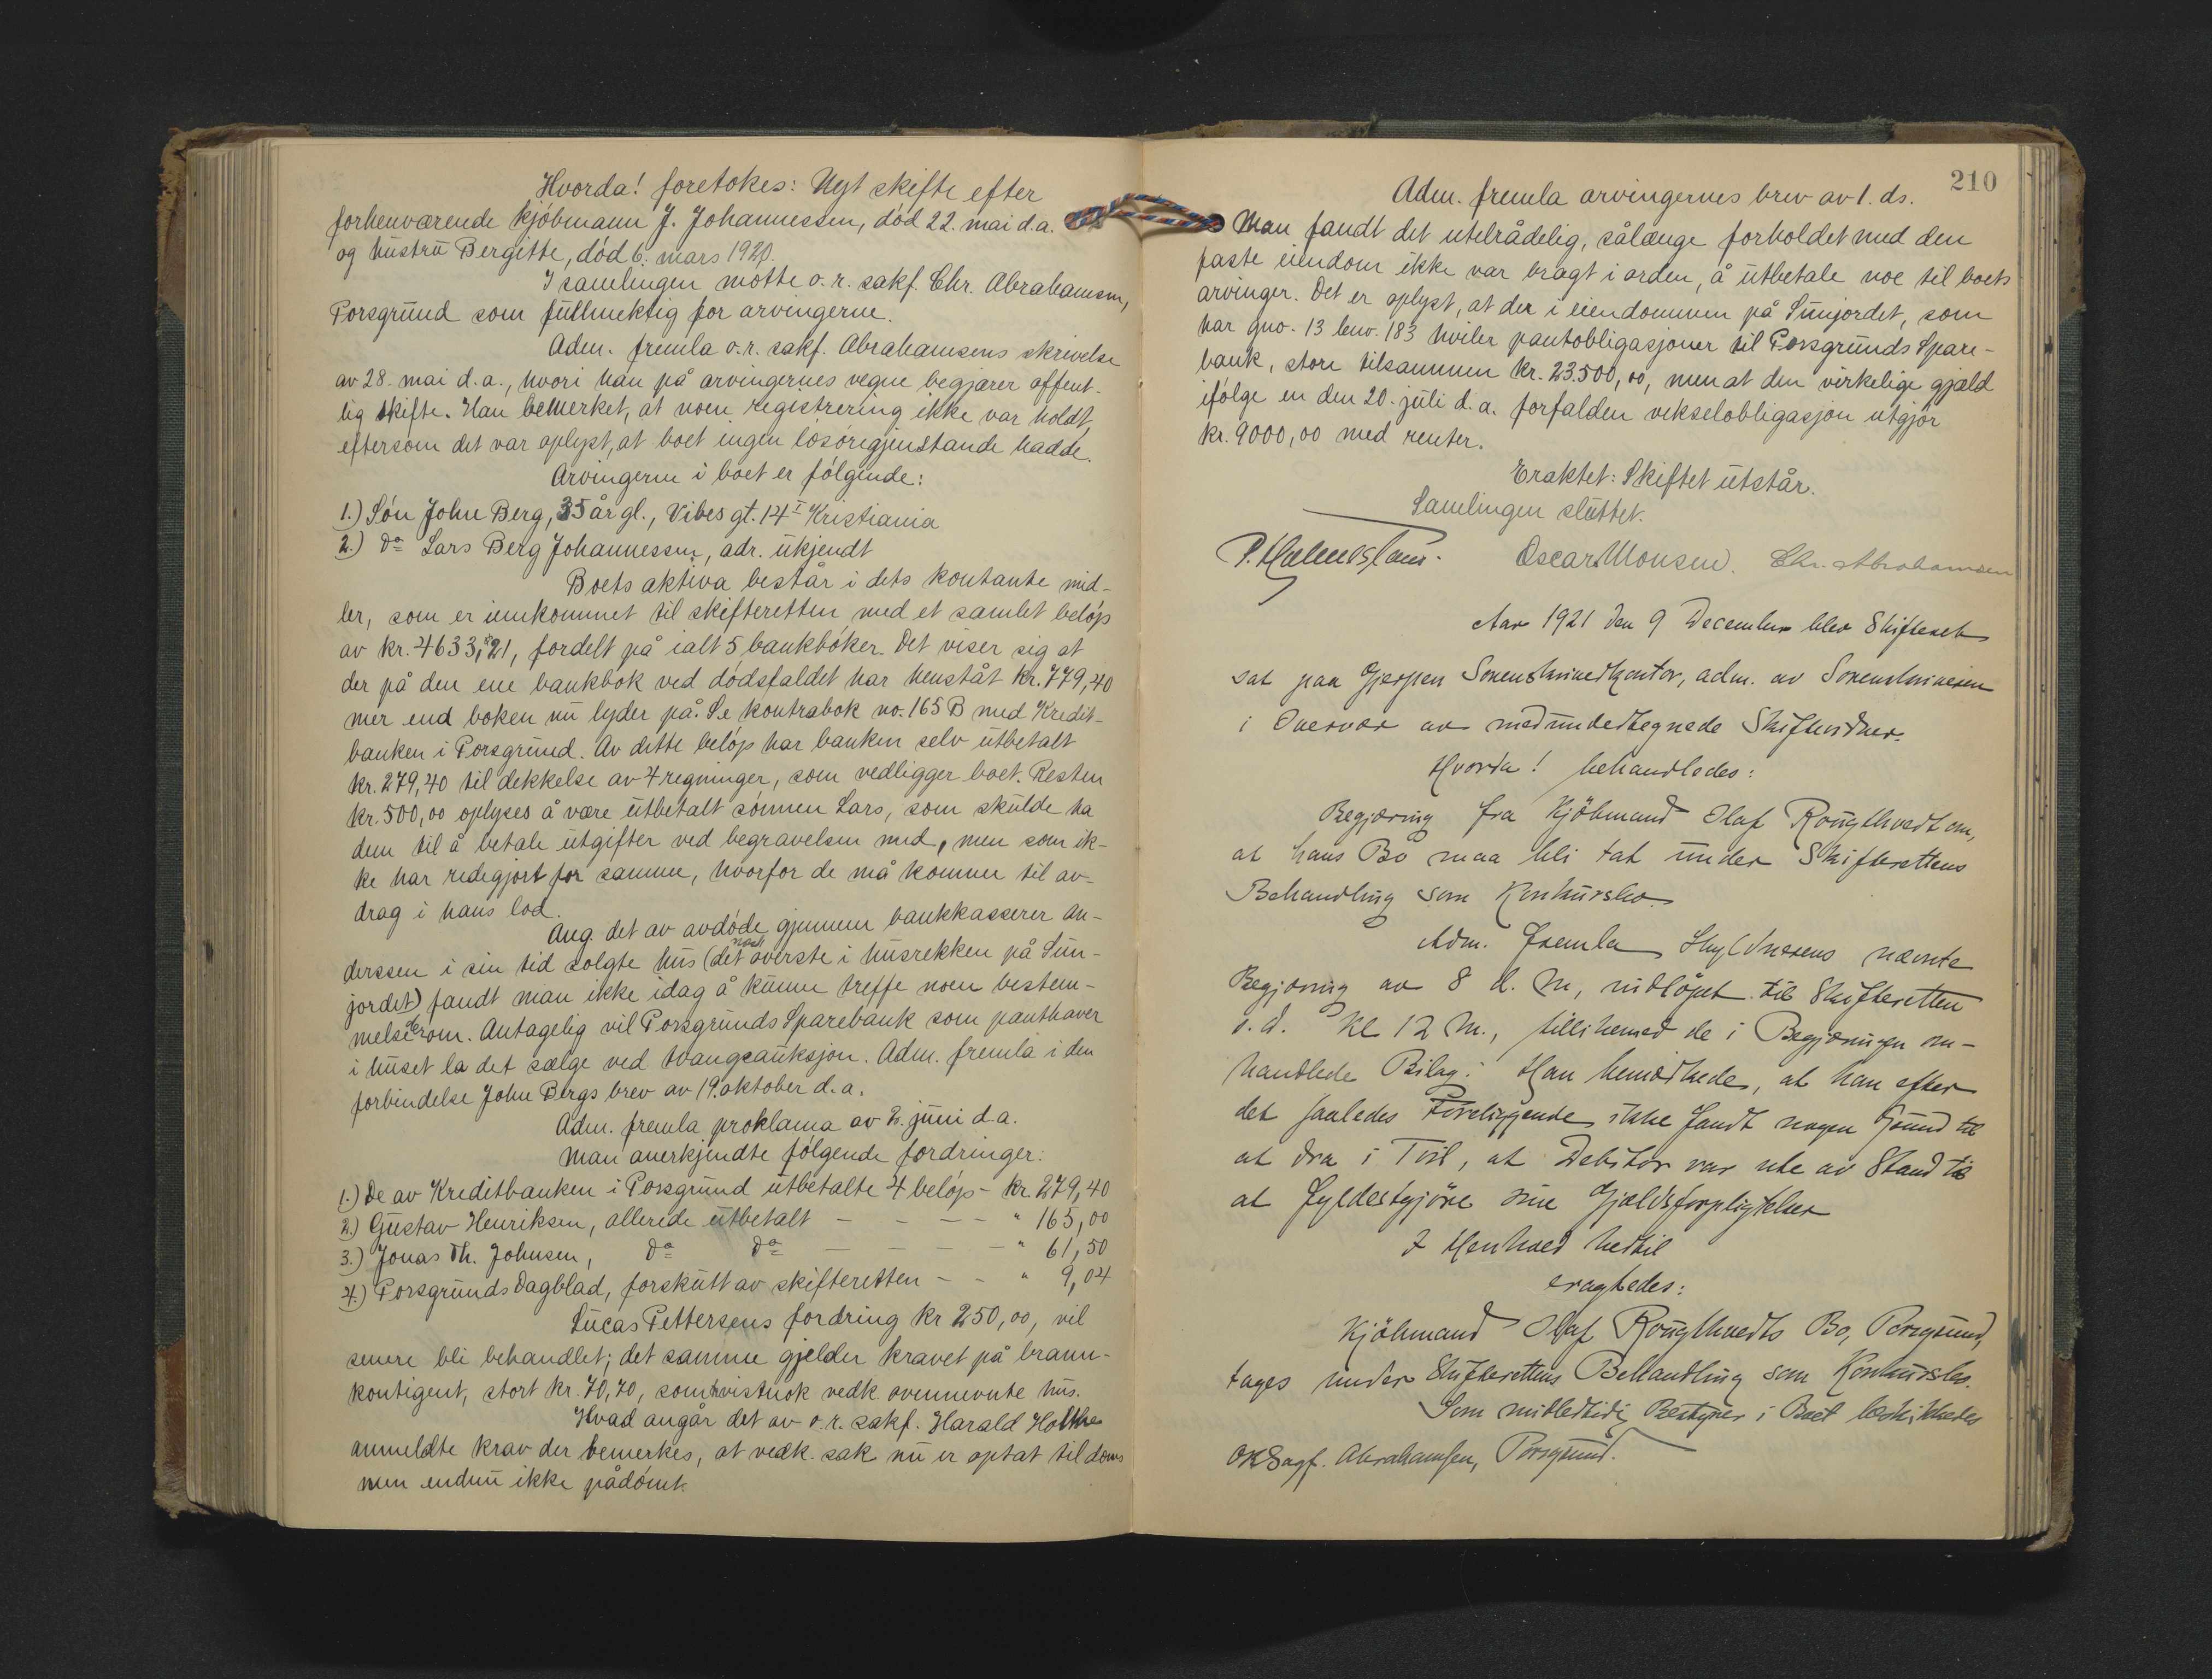 Hvorda! foretokes: Nyt skifte efter
forhenværende kjöbmann J. Johannessen, död 22. mai d.a.
og hustru Bergitte, död 6. mars 1920.
I samlingen mötte o.r. sakf. Chr. Abrahamsen,
Porsgrund som fullmektig for arvingerne.
Adm. fremla o.r. sakf. Abrahamsens skrivelse
av 28. mai d.a., hvori han på arvingernes vegne begjærer offent-
lig skifte. Han bemerket, at noen registrering ikke var holdt,
eftersom det var oplyst, at boet ingen lösöregjenstande hadde.
Arvingerne i boet er fölgende:
1.) Sön John Berg, 35 år gl., Vibes gt. 14 I Kristiania
2.) do Lars Berg Johannessen, adr. ukjendt
Boets aktiva består i dets kontante mid-
ler, som er innkommet til skifteretten med et samlet belöp
av kr. 4633,21, fordelt på ialt 5 bankböker. Det viser sig at
der på den ene bankbok ved dödsfaldet har henståt kr. 779,40
mer end boken nu lyder på. Se kontrabok no. 165 B med Kredit-
banken i Porsgrund. Av dette belöp har banken selv utbetalt
kr. 279,40 til dekkelse av 4 regninger, som vedligger boet. Resten
kr. 500,00 oplyses å være utbetalt sönnen Lars, som skulde ha
dem til å betale utgifter ved begravelsen med, men som ik-
ke har redegjort for samme, hvorfor de må komme til av-
drag i hans lod.
Ang. det av avdöde gjennem bankkasserer An-
derssen i sin tid solgte hus (det næst överste i husrekken på Sun-
jordet) fandt man ikke idag å kunne treffe noen bestem-
melse om. Antagelig vil Porsgrunds Sparebank som panthaver
i huset la det sælge ved tvangsauksjon. Adm. fremla i den
forbindelse John Bergs brev av 19. oktober d.a.
Adm. fremla proklama av 2. juni d.a.
Man anerkjendte fölgende fordringer:
1.) De av Kreditbanken i Porsgrund utbetalte 4 belöp - kr. 279,40
2.) Gustav Henriksen, allerede utbetalt - - - - " 165,00
3.) Jonas Th. Johnsen, do do - - - - - " 61,50
4.) Porsgrunds Dagblad, forskutt av skifteretten - - " 9,04
Lucas Pettersens fordring kr 250,00, vil
senere bli behandlet; det samme gjelder kravet på brann-
kontigent, stort kr. 70,70, som vistnok vedk. ovennevnte hus.
Hvad angår det av o.r. sakf. Harald Holthe
anmeldte krav der bemerkes, at vedk. sak nu er optat til doms
men endnu ikke pådömt.
210
Adm. fremla arvingernes brev av 1. ds.
Man fandt det utilrådelig, sålænge forholdet med den
faste eiendom ikke var bragt i orden, å utbetale noe til boets
arvinger. Det er oplyst, at der i eiendommen på Sunjordet, som
har gno. 13 bnr. 183 hviler pantobligasjoner til Porsgrunds Spare-
bank, store tilsammen kr. 23.500,00, men at den virkelige gjæld
ifölge en den 20. juli d.a. forfalden vekselobligasjon utgjör
kr. 9000,00 med renter.
Eraktet: Skiftet utstår.
Samlingen sluttet.
Oscar Monsen. Chr. Abrahamsen
Aar 1921 den 9 December blev Skifteret
sat paa Gjerpen Sorenskriverkontor, adm. av Sorenskriveren
i Overvær av medundertegnede Skiftevidner.
Hvorda! behandledes:
Begjæring fra Kjöbmand Olaf Rougthvedt om,
at hans Bo maa bli tat under Skifterettens
Behandling som Konkursbo.
Adm. fremla Skyldnerens nævnte
Begjæring av 8 d. M., indlöpet til Skifteretten
s. d. Kl 12 M., tillikemed de i Begjæringen om-
handlede Bilag. Han bemærkede, at han efter
det saaledes Foreliggende ikke fandt nogen Grund til
at dra i Tvil, at Debitor var ute av Stand til
at fyldestgjöre sine Gjældsforpligtelser
I Henhold hertil
eragtedes:
Kjöbmand Olaf Rougthvedts Bo, Porsgrund,
tages under Skifterettens Behandling som Konkursbo.
Som midlertidig Bestyrer i Boet beskikkedes
OR Sagf. Abrahamsen, Porsgrund.